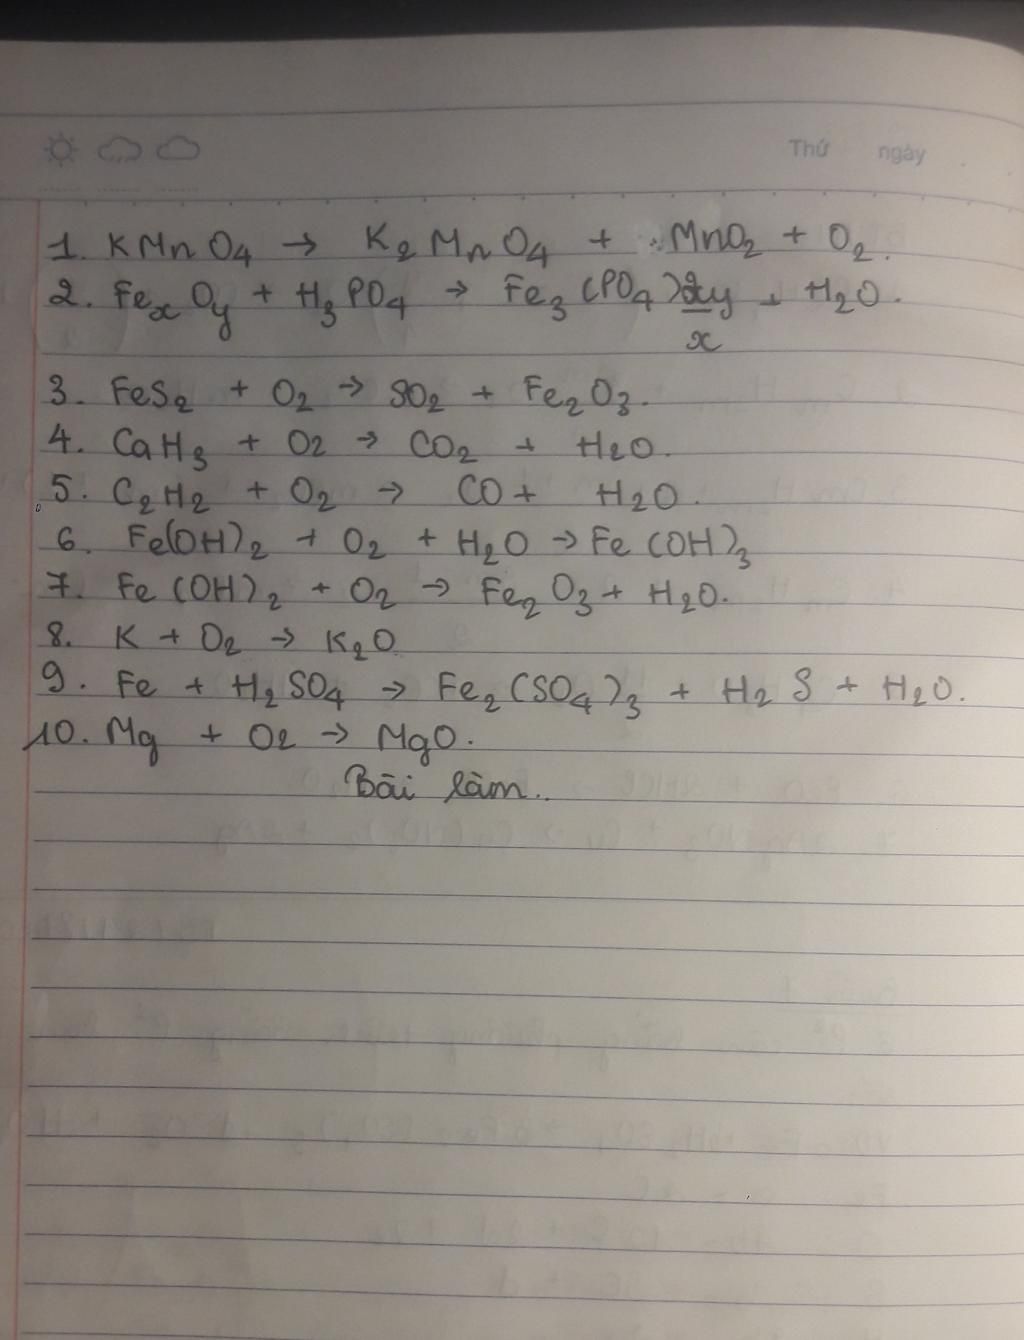 Thứ ngày
1. KMnO4 → K2MnO4 + MnO2 + O2.
2. FexOy + H3PO4 → Fe3(PO4)2y/x + H2O.
3. FeS2 + O2 → SO2 + Fe2O3.
4. CaH3 + O2 → CO2 + H2O.
5. C2H2 + O2 → CO + H2O.
6. Fe(OH)2 + O2 + H2O → Fe(OH)3
7. Fe(OH)2 + O2 → Fe2O3 + H2O.
8. K + O2 → K2O
9. Fe + H2SO4 → Fe2(SO4)3 + H2S + H2O.
10. Mg + O2 → MgO.
Bãi làm..